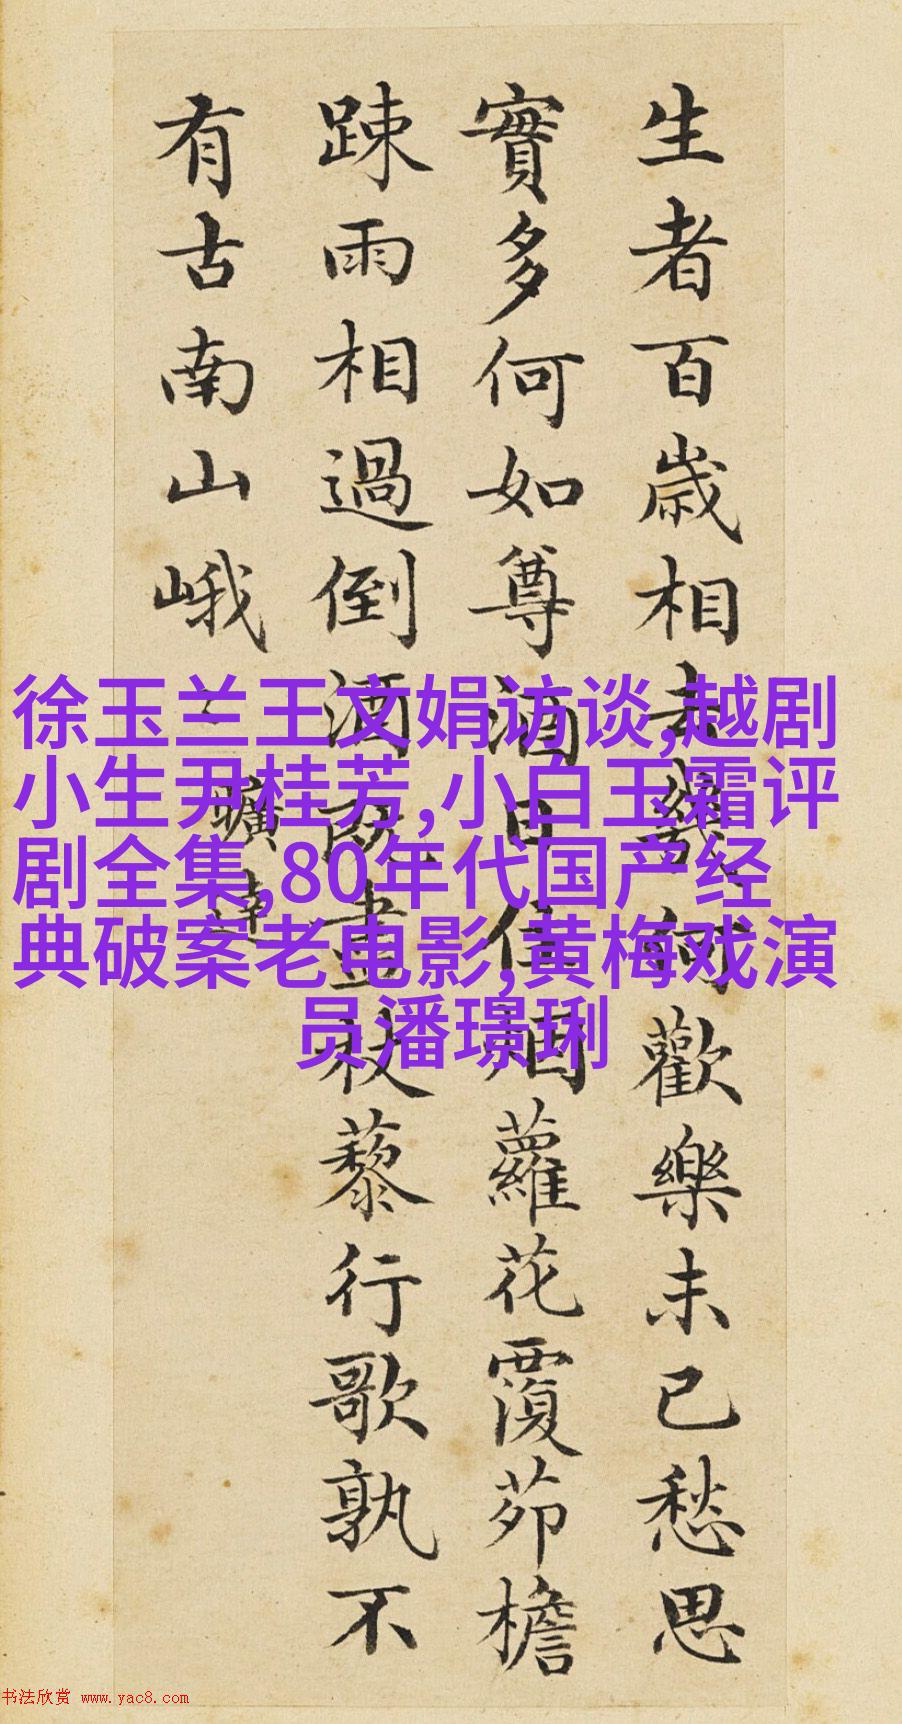 生者百歲相去幾何歡樂未已愁思
實多何如尊酒日往烟蘿花覆茆檐
踈雨相過倒酒既盡杖藜行歌孰不
有古南山峨〻曠達
徐玉兰王文娟访谈,越剧
小生尹桂芳,小白玉霜评
剧全集,80年代国产经
典破案老电影,黄梅戏演
员潘璟琍
书法欣赏 www.yac8.com